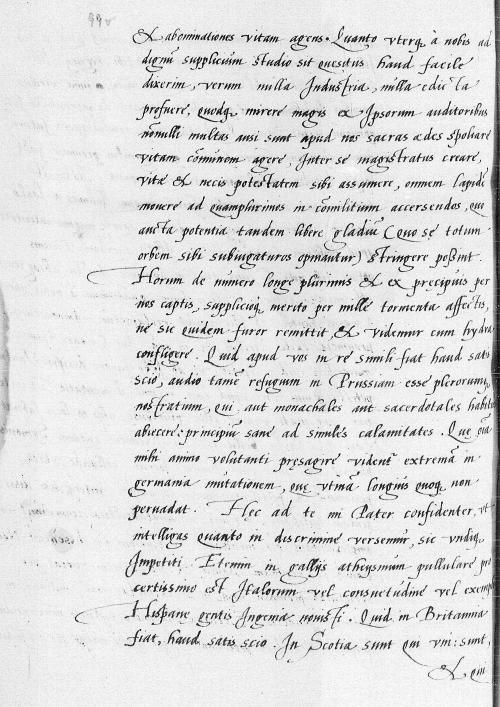 99v
& abominationes vitam agens. Quanto vterq à nobis ad
dignũ supplicium studio sit quesitus haud facile
dixerim, verum nulla Industria, nulla edicta
profuere, quodq mirere magis ex Ipsorum auditoribus
nõnulli multas ausi sunt apud nos sacras ædes spoliare
vitam cõmunem agere, Inter se magistratus creare,
vitæ & necis potestatem sibi assumere, omnem lapidẽ
mouere ad quamplurimos in cõmilitium accersendos, qui
aucta potentia tandem libere gladiũ (quo se totum
orbem sibi subiugaturos opinantur) stringere possint.
Horum de numero longe plurimis & ex precipuis per
nos captis, supplicioq merito per mille tormenta affectis,
ne sic quidem furor remittit & videmur cum hydra
confligere. Quid apud vos in re simili fiat haud satis
scio, audio tamẽ refugium in Prussiam esse plerorumq
nostratium, qui aut monachales aut sacerdotales habitus
abiecere: principiũ sane ad similes calamitates. Que oĩa
mihi animo volutanti presagire videntr extremã in
germania mutationem, que vtinã longius quoq non
peruadat. Hec ad te mi Pater confidenter, vt
intelligas quanto in discrimine versemur, sic vndiq
Impetiti Etenim in gallijs atheysmum pullulare pro
certissimo est Italorum vel consuetudine vel exemplo
Hispane gentis Ingenia nouisti. Quid in Britannia
fiat, haud satis scio. In Scotia sunt qui vni: sunt
& qui